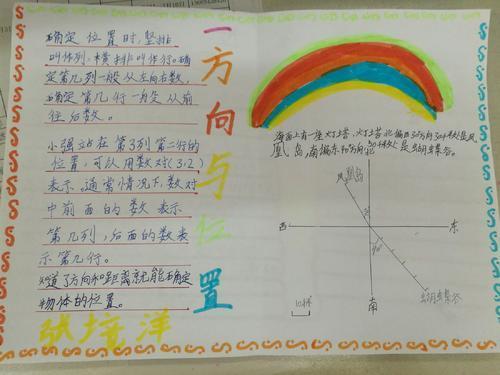 确定位置时,竖排
叫作列,横排叫作行。确
定第几列一般从左向右数,
确定第几行一般从前
往后数。
小强站在第3列第二行的
位置,可以用数对(3,2)
表示。通常情况下,数对
中前面的数表示
第几列,后面的数表
示第几行。
知道了方向和距离就能确定
物体的位置。
张境洋
一方向与位置
海面上有一座灯塔,灯塔北偏西30方向30千米处是凤
凰岛,南偏东40方向50千米处是蝴蝶谷。
凤凰岛
西
东
南
蝴蝶谷